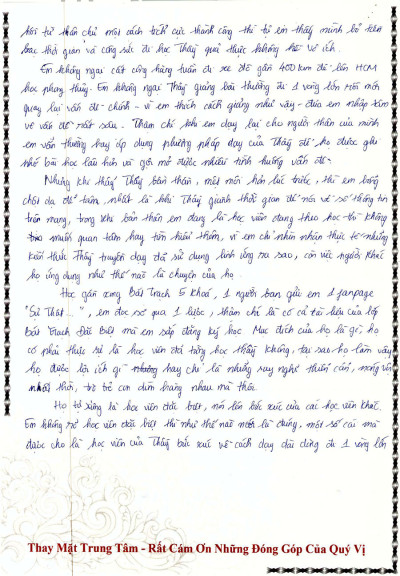 hỏi từ chân chủ một cách tích cực thành công thì tự em thấy mình bỏ tiền
bạc thời gian và công sức đi học Thầy quả thực không hề vô ích.
Em không ngại cất công hàng tuần đi xe đò gần 400 km để lên HCM
học phong thủy. Em không ngại Thầy giảng bài thường đi 1 vòng lớn rồi mới
quay lại vấn đề chính - vì em thích cách giảng như vậy - đưa em nhập tâm
về vấn đề rất sâu. Thậm chí khi em dạy lại cho người thân của mình
em vẫn thường hay áp dụng phương pháp dạy của Thầy để họ được ghi
nhớ bài học lâu hơn và gợi mở được nhiều tình huống vấn đề.
Nhưng khi thấy Thầy bần thần, mệt mỏi hơn lúc trước, thì em bỗng
chột dạ để tâm, nhất là khi Thầy giành thời gian để nói về số thông tin
trên mạng, trong khi bản thân em đang là học viên đang theo học thì không
muốn quan tâm hay tìm hiểu thêm, vì em chỉ nhìn nhận thực tế những
kiến thức Thầy truyền dạy đã sử dụng linh ứng ra sao, còn việc người khác
họ ứng dụng như thế nào là chuyện của họ.
Học gần xong Bát Trạch 5 khoá, 1 người bạn gửi em 1 fanpage
"Sự Thật ...", em đọc sơ qua 1 lược, thậm chí là có cả tài liệu của lớp
Bát Trạch Đặc Biệt mà em sắp đăng ký học. Mục đích của họ là gì, họ
có phải thực sự là học viên đã từng học thầy không, tại sao họ làm vậy
họ được lợi ích gì hay chỉ là những suy nghĩ thiển cận, nông nổi
nhất thời, rồi bè cơn dìm hàng nhau mà thôi.
Họ tự xưng là học viên đặc biệt, nói lên bức xúc của các học viên khác.
Em không rõ học viên đặc biệt thì như thế nào mới là đúng, một số cái mà
được cho là học viên của Thầy bức xúc về cách dạy dài dòng đi 1 vòng lớn
Thay Mặt Trung Tâm - Rất Cảm Ơn Những Đóng Góp Của Quý Vị